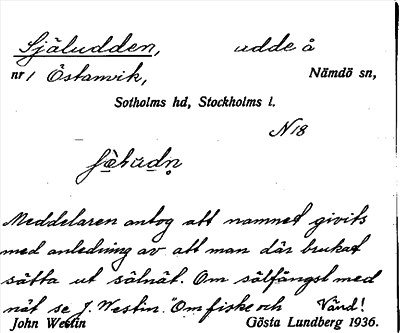 Själudden, udde å
nr 1 Östanvik, Nämdö sn,
Sotholms hd, Stockholms l.
N 18
Meddelaren antog att namnet givits
med anledning av att man där brukat
sätta ut sälnät. Om sälfångst med
nät se J. Westin. "Om fiske och Vänd!
John Westin Gösta Lundberg 1936.